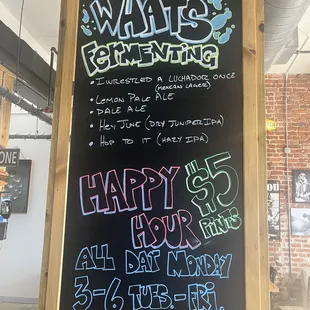 WHATS
FERMENTING
• I WRESTLED A LUCHADOR ONCE
(MEXICAN LAGER)
• LEMON PALE ALE
• DALE ALE
• HEY JUNE (DRY JUNIPER IPA)
• HOP TO IT (HAZY IPA)
HAPPY
HOUR
$5
PINTS
ALL DAY MONDAY
3-6 TUES.-FRI.
ONE